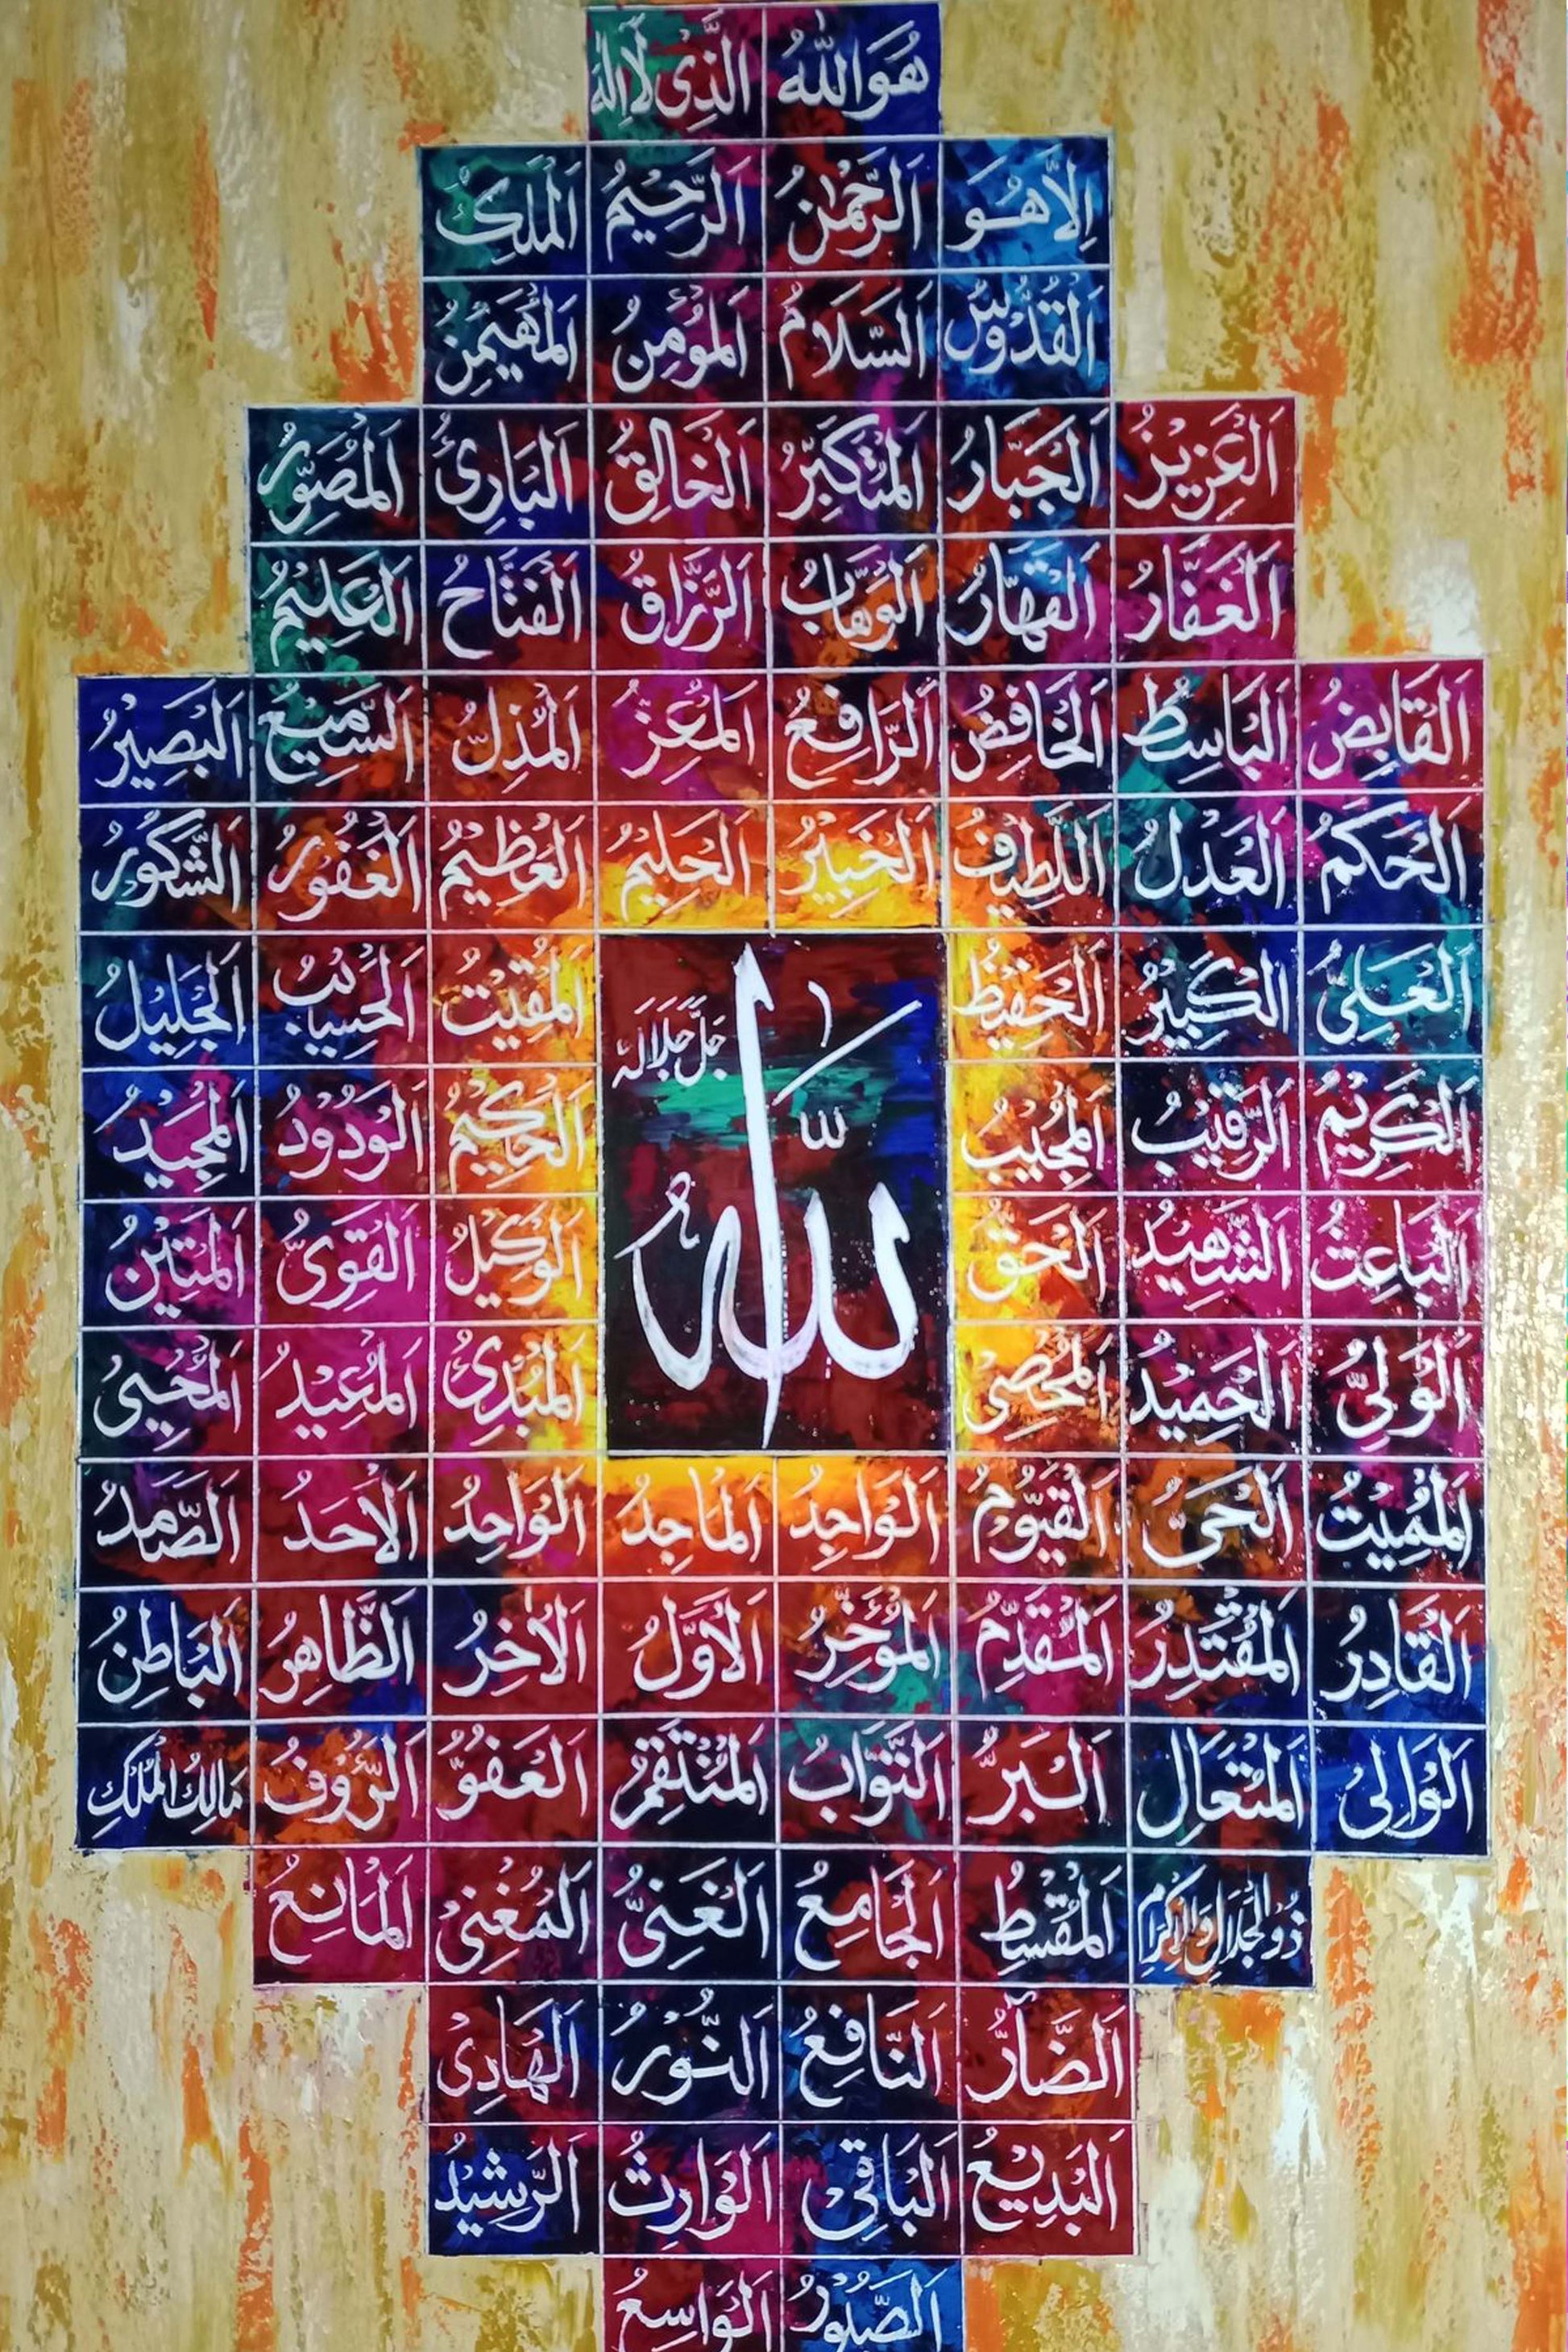 هُوَ اللّٰهُ الَّذِی لَا اِلٰهَ
اِلَّا هُوَ الرَّحْمٰنُ الرَّحِیْمُ الْمَلِکُ
اَلْقُدُّوْسُ اَلسَّلَامُ اَلْمُؤْمِنُ اَلْمُهَیْمِنُ
اَلْعَزِیْزُ اَلْجَبَّارُ اَلْمُتَکَبِّرُ اَلْخَالِقُ اَلْبَارِئُ اَلْمُصَوِّرُ
اَلْغَفَّارُ اَلْقَهَّارُ اَلْوَهَّابُ اَلرَّزَّاقُ اَلْفَتَّاحُ اَلْعَلِیْمُ
اَلْقَابِضُ اَلْبَاسِطُ اَلْخَافِضُ اَلرَّافِعُ اَلْمُعِزُّ اَلْمُذِلُّ اَلسَّمِیْعُ اَلْبَصِیْرُ
اَلْحَکَمُ اَلْعَدْلُ اَللَّطِیْفُ اَلْخَبِیْرُ اَلْحَلِیْمُ اَلْعَظِیْمُ اَلْغَفُوْرُ اَلشَّکُوْرُ
اَلْعَلِیُّ اَلْکَبِیْرُ اَلْحَفِیْظُ اَلْمُقِیْتُ اَلْحَسِیْبُ اَلْجَلِیْلُ
اللّٰه جَلَّ جَلَالَہٗ
اَلْکَرِیْمُ اَلرَّقِیْبُ اَلْمُجِیْبُ اَلْحَکِیْمُ اَلْوَدُوْدُ اَلْمَجِیْدُ
اَلْبَاعِثُ اَلشَّهِیْدُ اَلْحَقُّ اَلْوَکِیْلُ اَلْقَوِیُّ اَلْمَتِیْنُ
اَلْوَلِیُّ اَلْحَمِیْدُ اَلْمُحْصِیْ اَلْمُبْدِیُٔ اَلْمُعِیْدُ اَلْمُحْیِیْ
اَلْمُمِیْتُ اَلْحَیُّ اَلْقَیُّوْمُ اَلْوَاجِدُ اَلْمَاجِدُ اَلْوَاحِدُ اَلْاَحَدُ اَلصَّمَدُ
اَلْقَادِرُ اَلْمُقْتَدِرُ اَلْمُقَدِّمُ اَلْمُؤَخِّرُ اَلْاَوَّلُ اَلْاٰخِرُ اَلظَّاهِرُ اَلْبَاطِنُ
اَلْوَالِی اَلْمُتَعَالِ اَلْبَرُّ اَلتَّوَّابُ اَلْمُنْتَقِمُ اَلْعَفُوُّ اَلرَّؤُوْفُ مَالِکُ الْمُلْکِ
ذُو الْجَلَالِ وَالْاِکْرَامِ اَلْمُقْسِطُ اَلْجَامِعُ اَلْغَنِیُّ اَلْمُغْنِیْ اَلْمَانِعُ
اَلضَّارُّ اَلنَّافِعُ اَلنُّوْرُ اَلْهَادِیْ
اَلْبَدِیْعُ اَلْبَاقِیْ اَلْوَارِثُ اَلرَّشِیْدُ
اَلصَّبُوْرُ اَلْوَاسِعُ